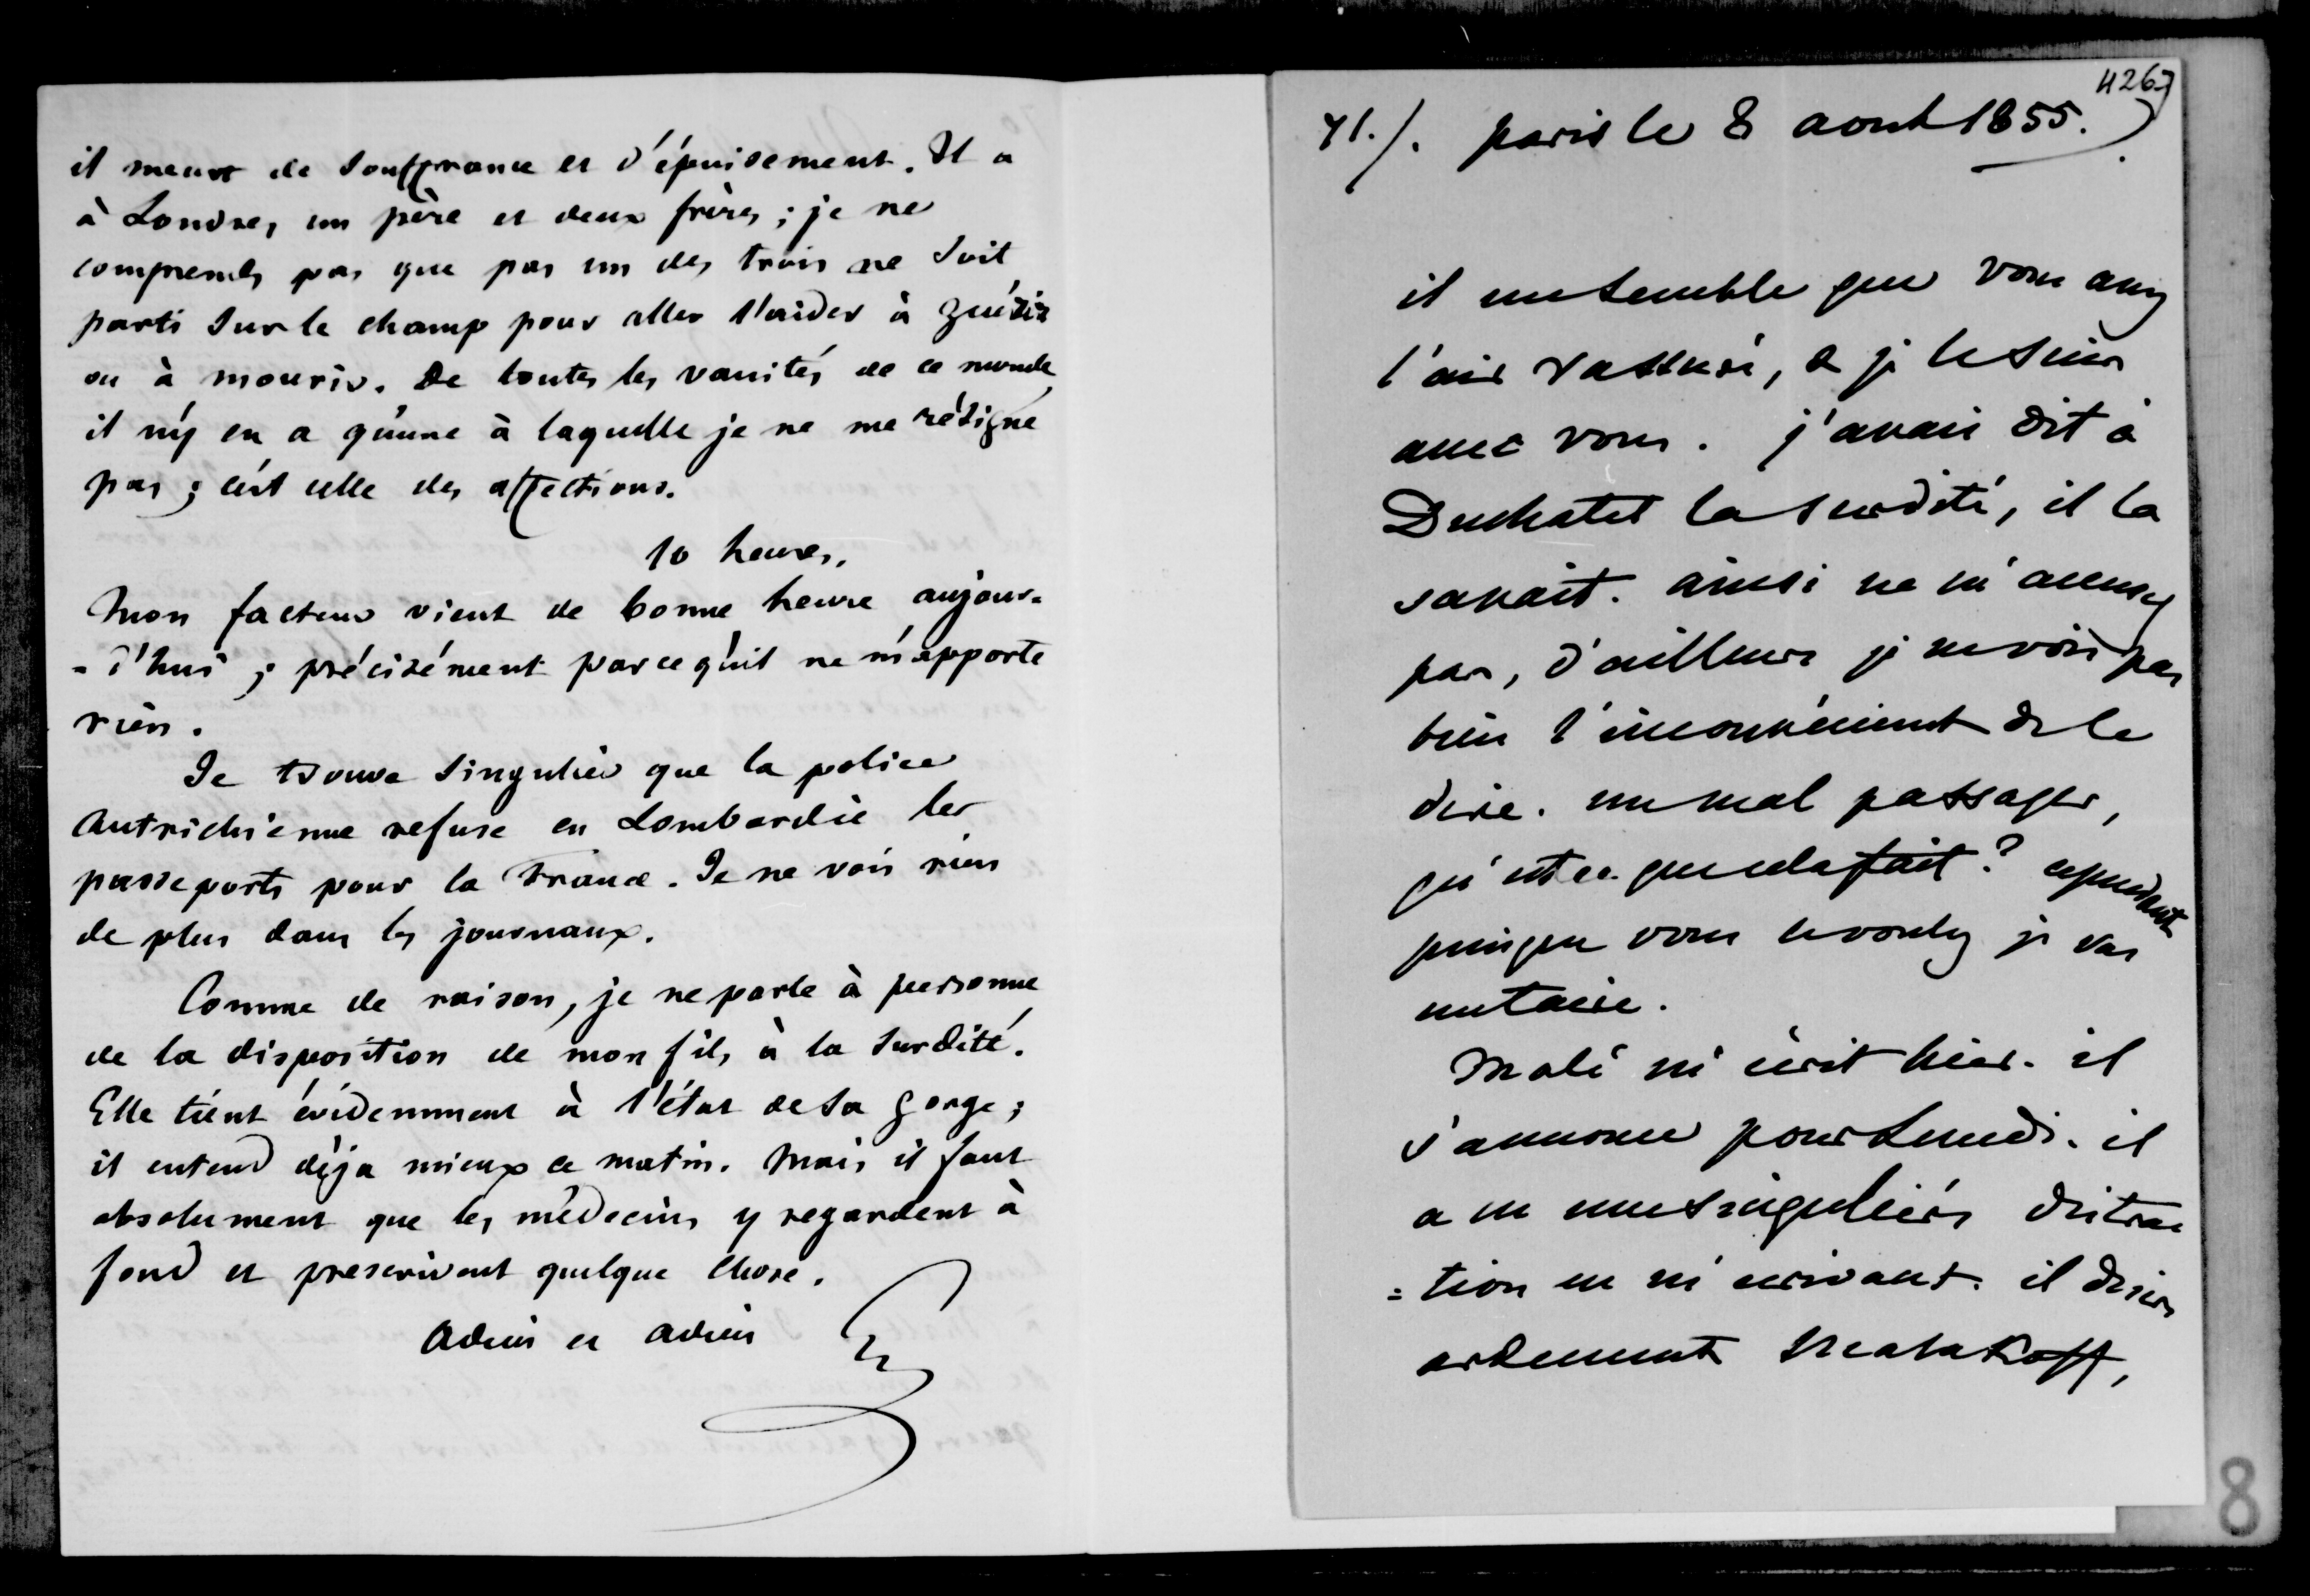 il meurt de souffrance et d'épuisement. Il a
à Londres un père et deux frères ; je ne
comprends pas que pas un des trois ne soit
parti sur le champ pour aller l'aider à guérir
ou à mourir. De toutes les vanités de ce monde
il n'y en a qu'une à laquelle je ne me résigne
pas ; c'est celle des affections.
10 heures.
Mon facteur vient de bonne heure aujour-
-d'hui ; précisément parcequ'il ne m'apporte
rien.
Je trouve singulier que la police
Autrichienne refuse en Lombardie les
passeports pour la France. Je ne vois rien
de plus dans les journaux.
Comme de raison, je ne parle à personne
de la disposition de mon fils à la surdité.
Elle tient évidemment à l'état de sa gorge ;
il entend déja mieux ce matin. Mais il faut
absolument que les médecins y regardent à
fond et prescrivent quelque chose.
Adieu et adieu
4267
71./. paris le 8 aout 1855.
il me semble que vous avez
l'air rassuré, & je le suis
avec vous. j'avais dit à
Duchatel la surdité, il la
savait. ainsi ne m'accusez
pas, d'ailleurs je ne vois pas
bien l'inconvénient de le
dire. un mal passager,
qu'est ce que cela fait ? cependant
puisque vous le voulez je vais
me taire.
Molé m'écrit hier. il
s'annonce pour Lundi. il
a eu une singulière distrac
=tion en m'écrivant. il désire
ardemment Malakoff,
8